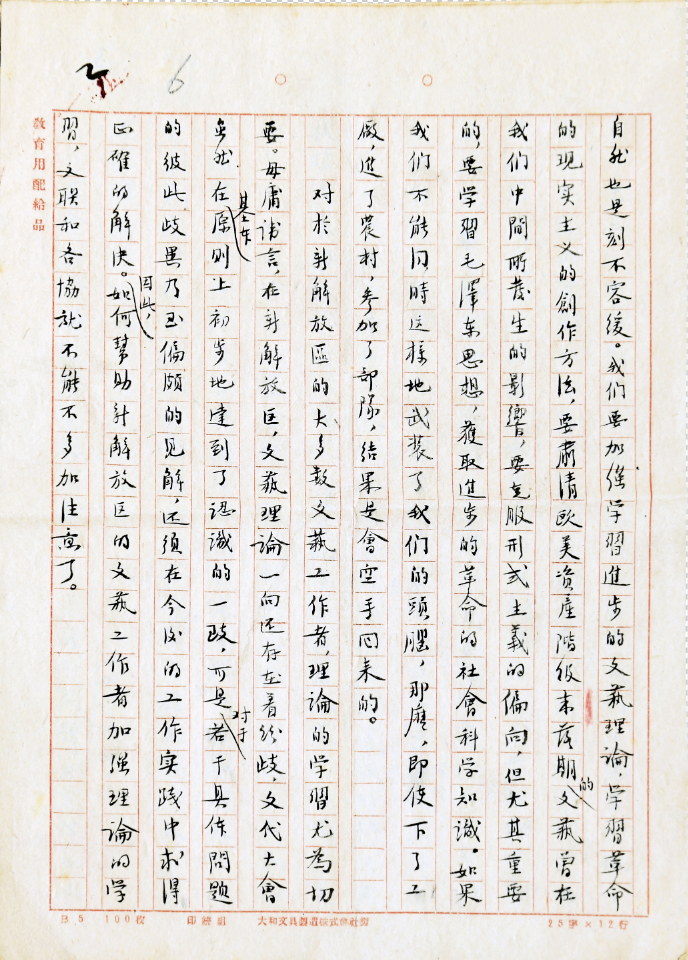 6
教育用配給品
自然也是刻不容缓。我们要加强学習進步的文藝理論，学習革命
的现实主义的創作方法，要肃清欧美资產階级末落期的文藝曾在
我们中間所發生的影響，要克服形式主義的偏向，但尤其重要
的，要学習毛澤东思想，獲取進步的革命的社會科学知識。如果
我们不能同時这樣地武装了我们的頭腦，那麽，即使下了工
廠，進了農村，参加了部隊，结果是會空手回来的。
对於新解放區的大多数文藝工作者，理論的学習尤為切
要。毋庸讳言，在新解放区，文藝理論一向还存在着纷歧，文代大會
虽然在基本原则上初步地達到了認識的一致，可是对于若干具体問題
的彼此歧異乃至偏頗的见解，还须在今後的工作实践中求得
正確的解决。因此，如何幫助新解放区的文藝工作者加强理論的学
習，文联和各協就不能不多加注意了。
B5 100枚
大和文具製造株式會社製
25字×12行